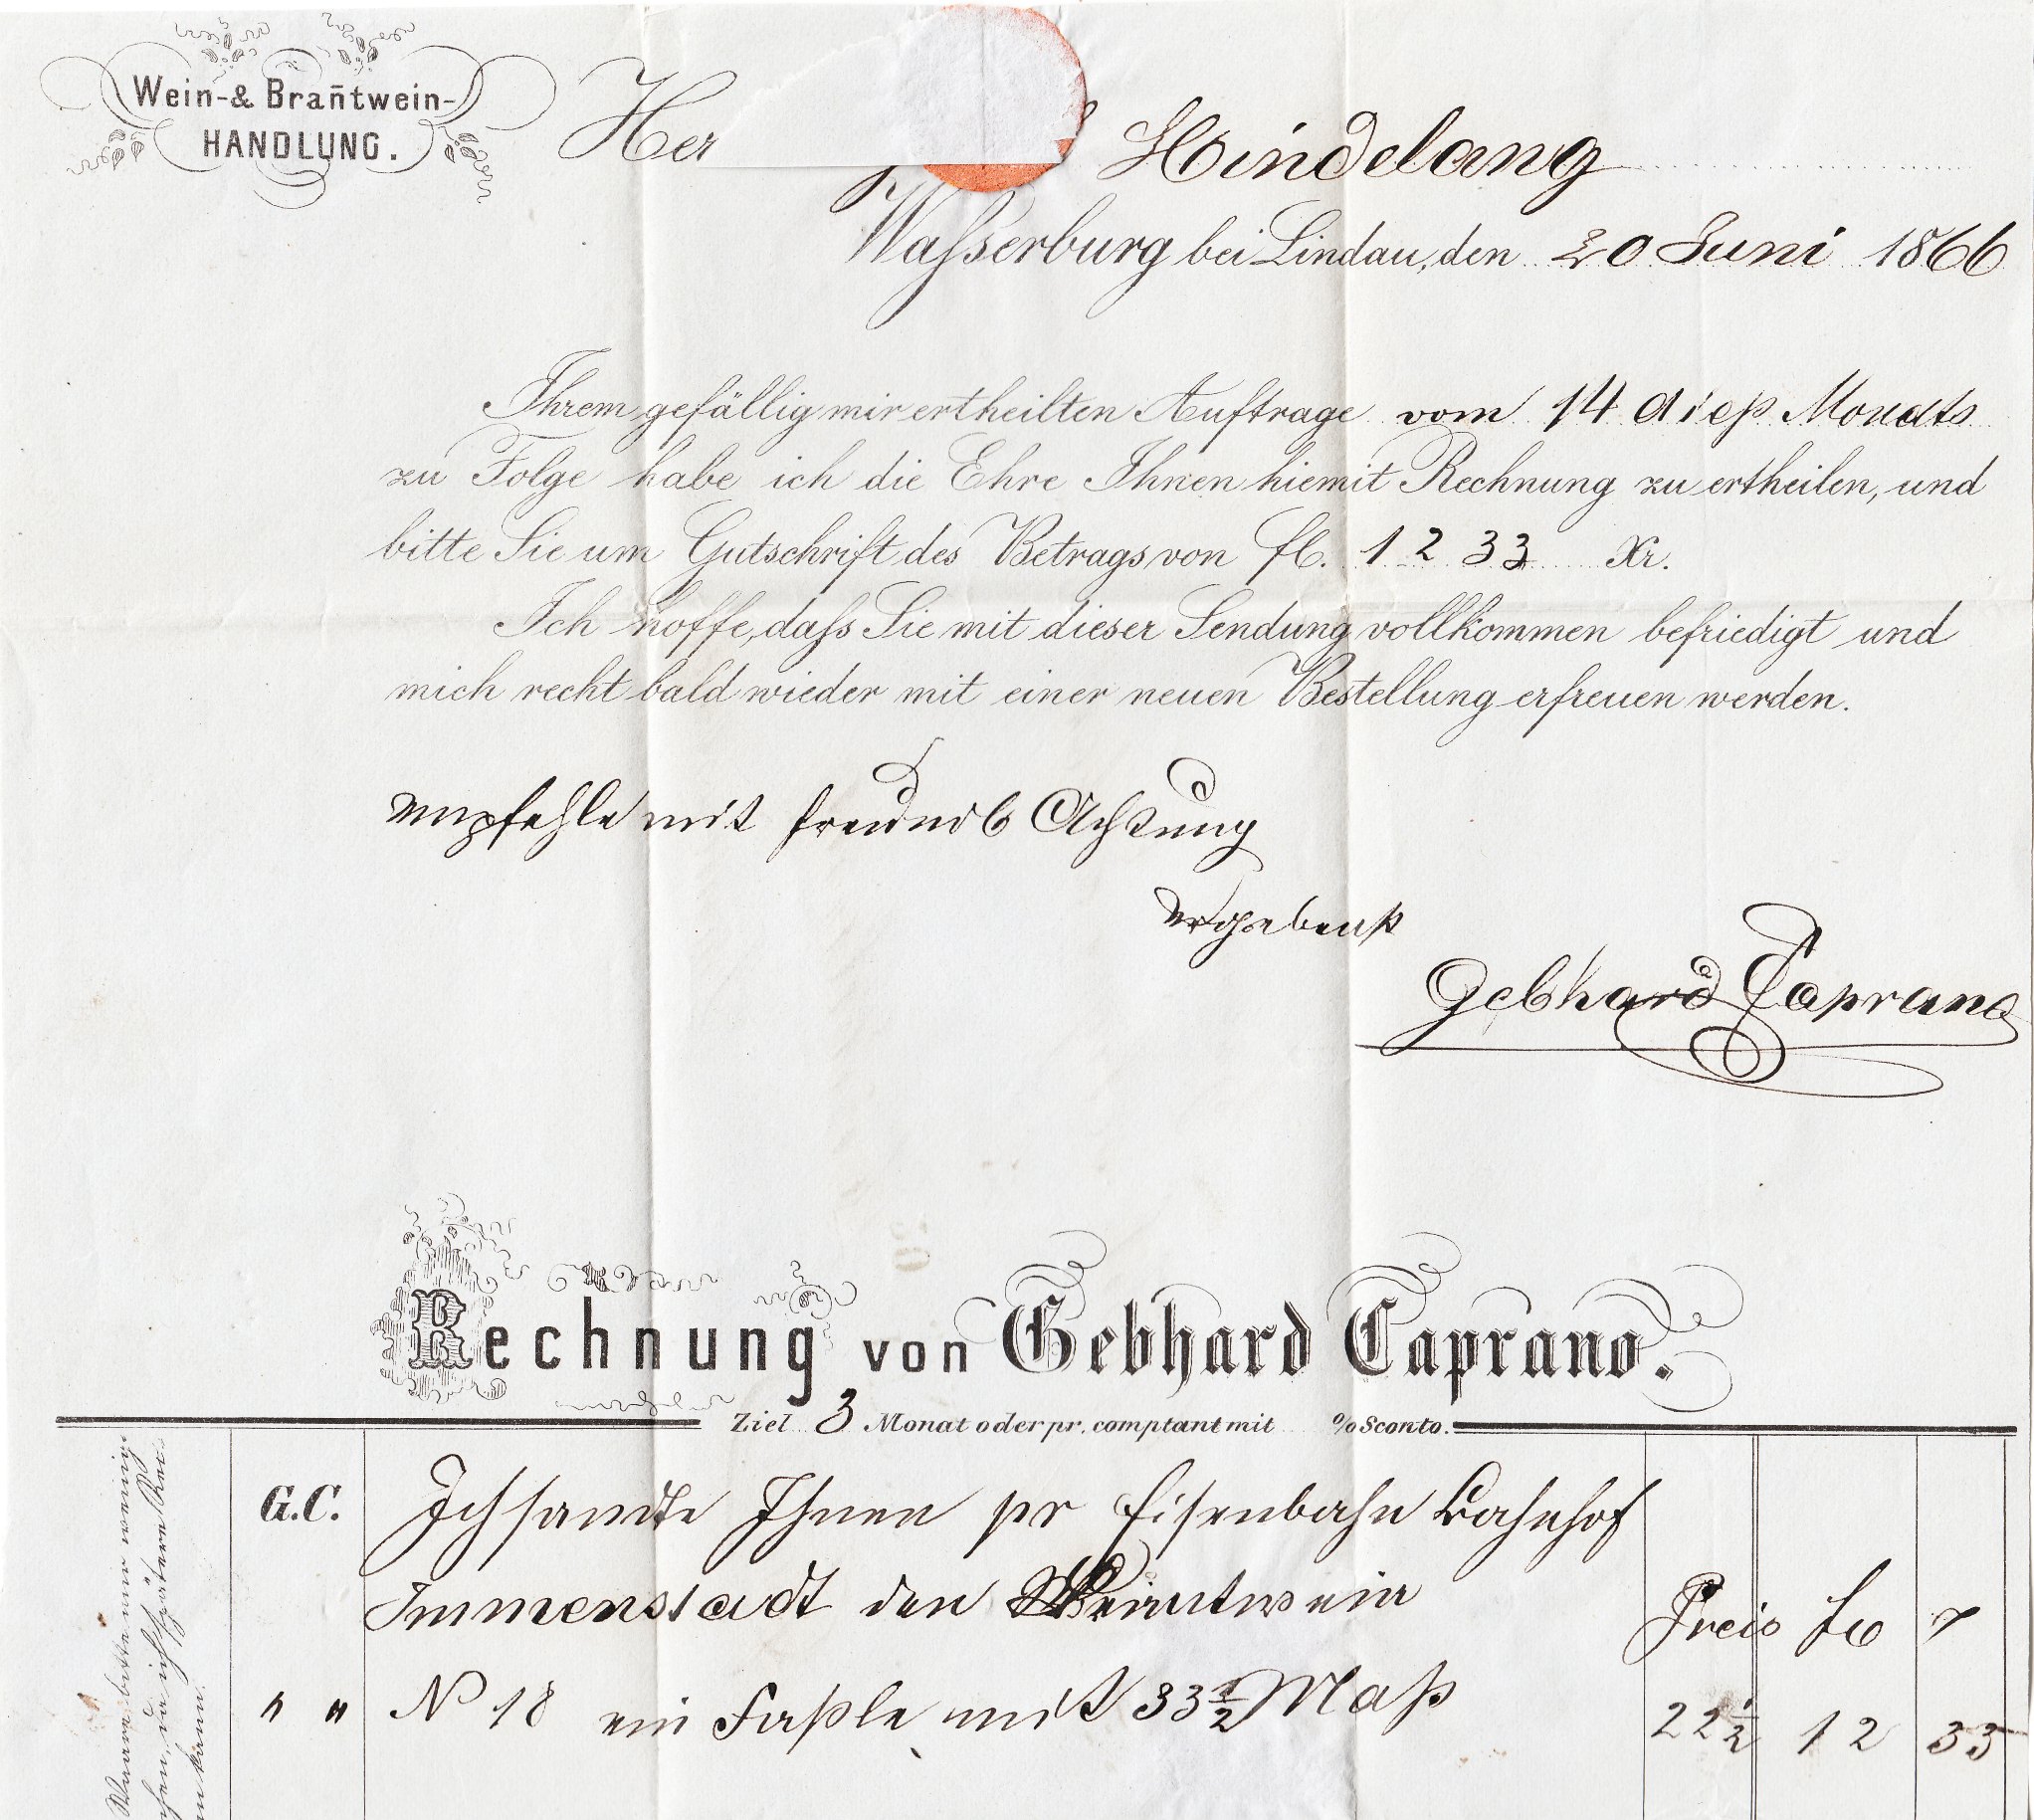 Wein-& Bran̄twein-
HANDLUNG.
Her Hindelang
Waſserburg bei Lindau, den 20 Juni 1866
Ihrem gefällig mir ertheilten Auftrage vom 14 dies Monats
zu Folge habe ich die Ehre Ihnen hiemit Rechnung zu ertheilen, und
bitte Sie um Gutschrift des Betrags von fl. 12 33 Xr.
Ich hoffe, daſs Sie mit dieser Sendung vollkommen befriedigt und
mich recht bald wieder mit einer neuen Bestellung erfreuen werden.
empfehle mit freundl Achtung
ergebenst
Gebhard Caprano
Rechnung von Gebhard Caprano.
Ziel 3 Monat oder pr. comptant mit % Sconto.
G.C. Ich sandte Ihnen pr Eisenbahn Bahnhof
Immenstadt den Brantwein
Preis fl
" " N 18 ein Faßle mit 33½ Maß 22½ 12 33
Waare bitte mir wenig-
hen, da ich spätere Rec-
en kann.